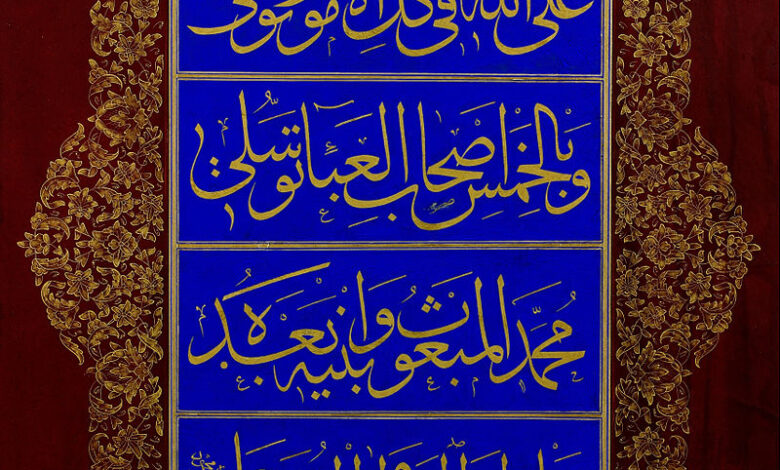 على الله في كل الامور توكلي
وبالخمس اصحاب العباء توسلي
محمد المبعوث وابنيه بعده